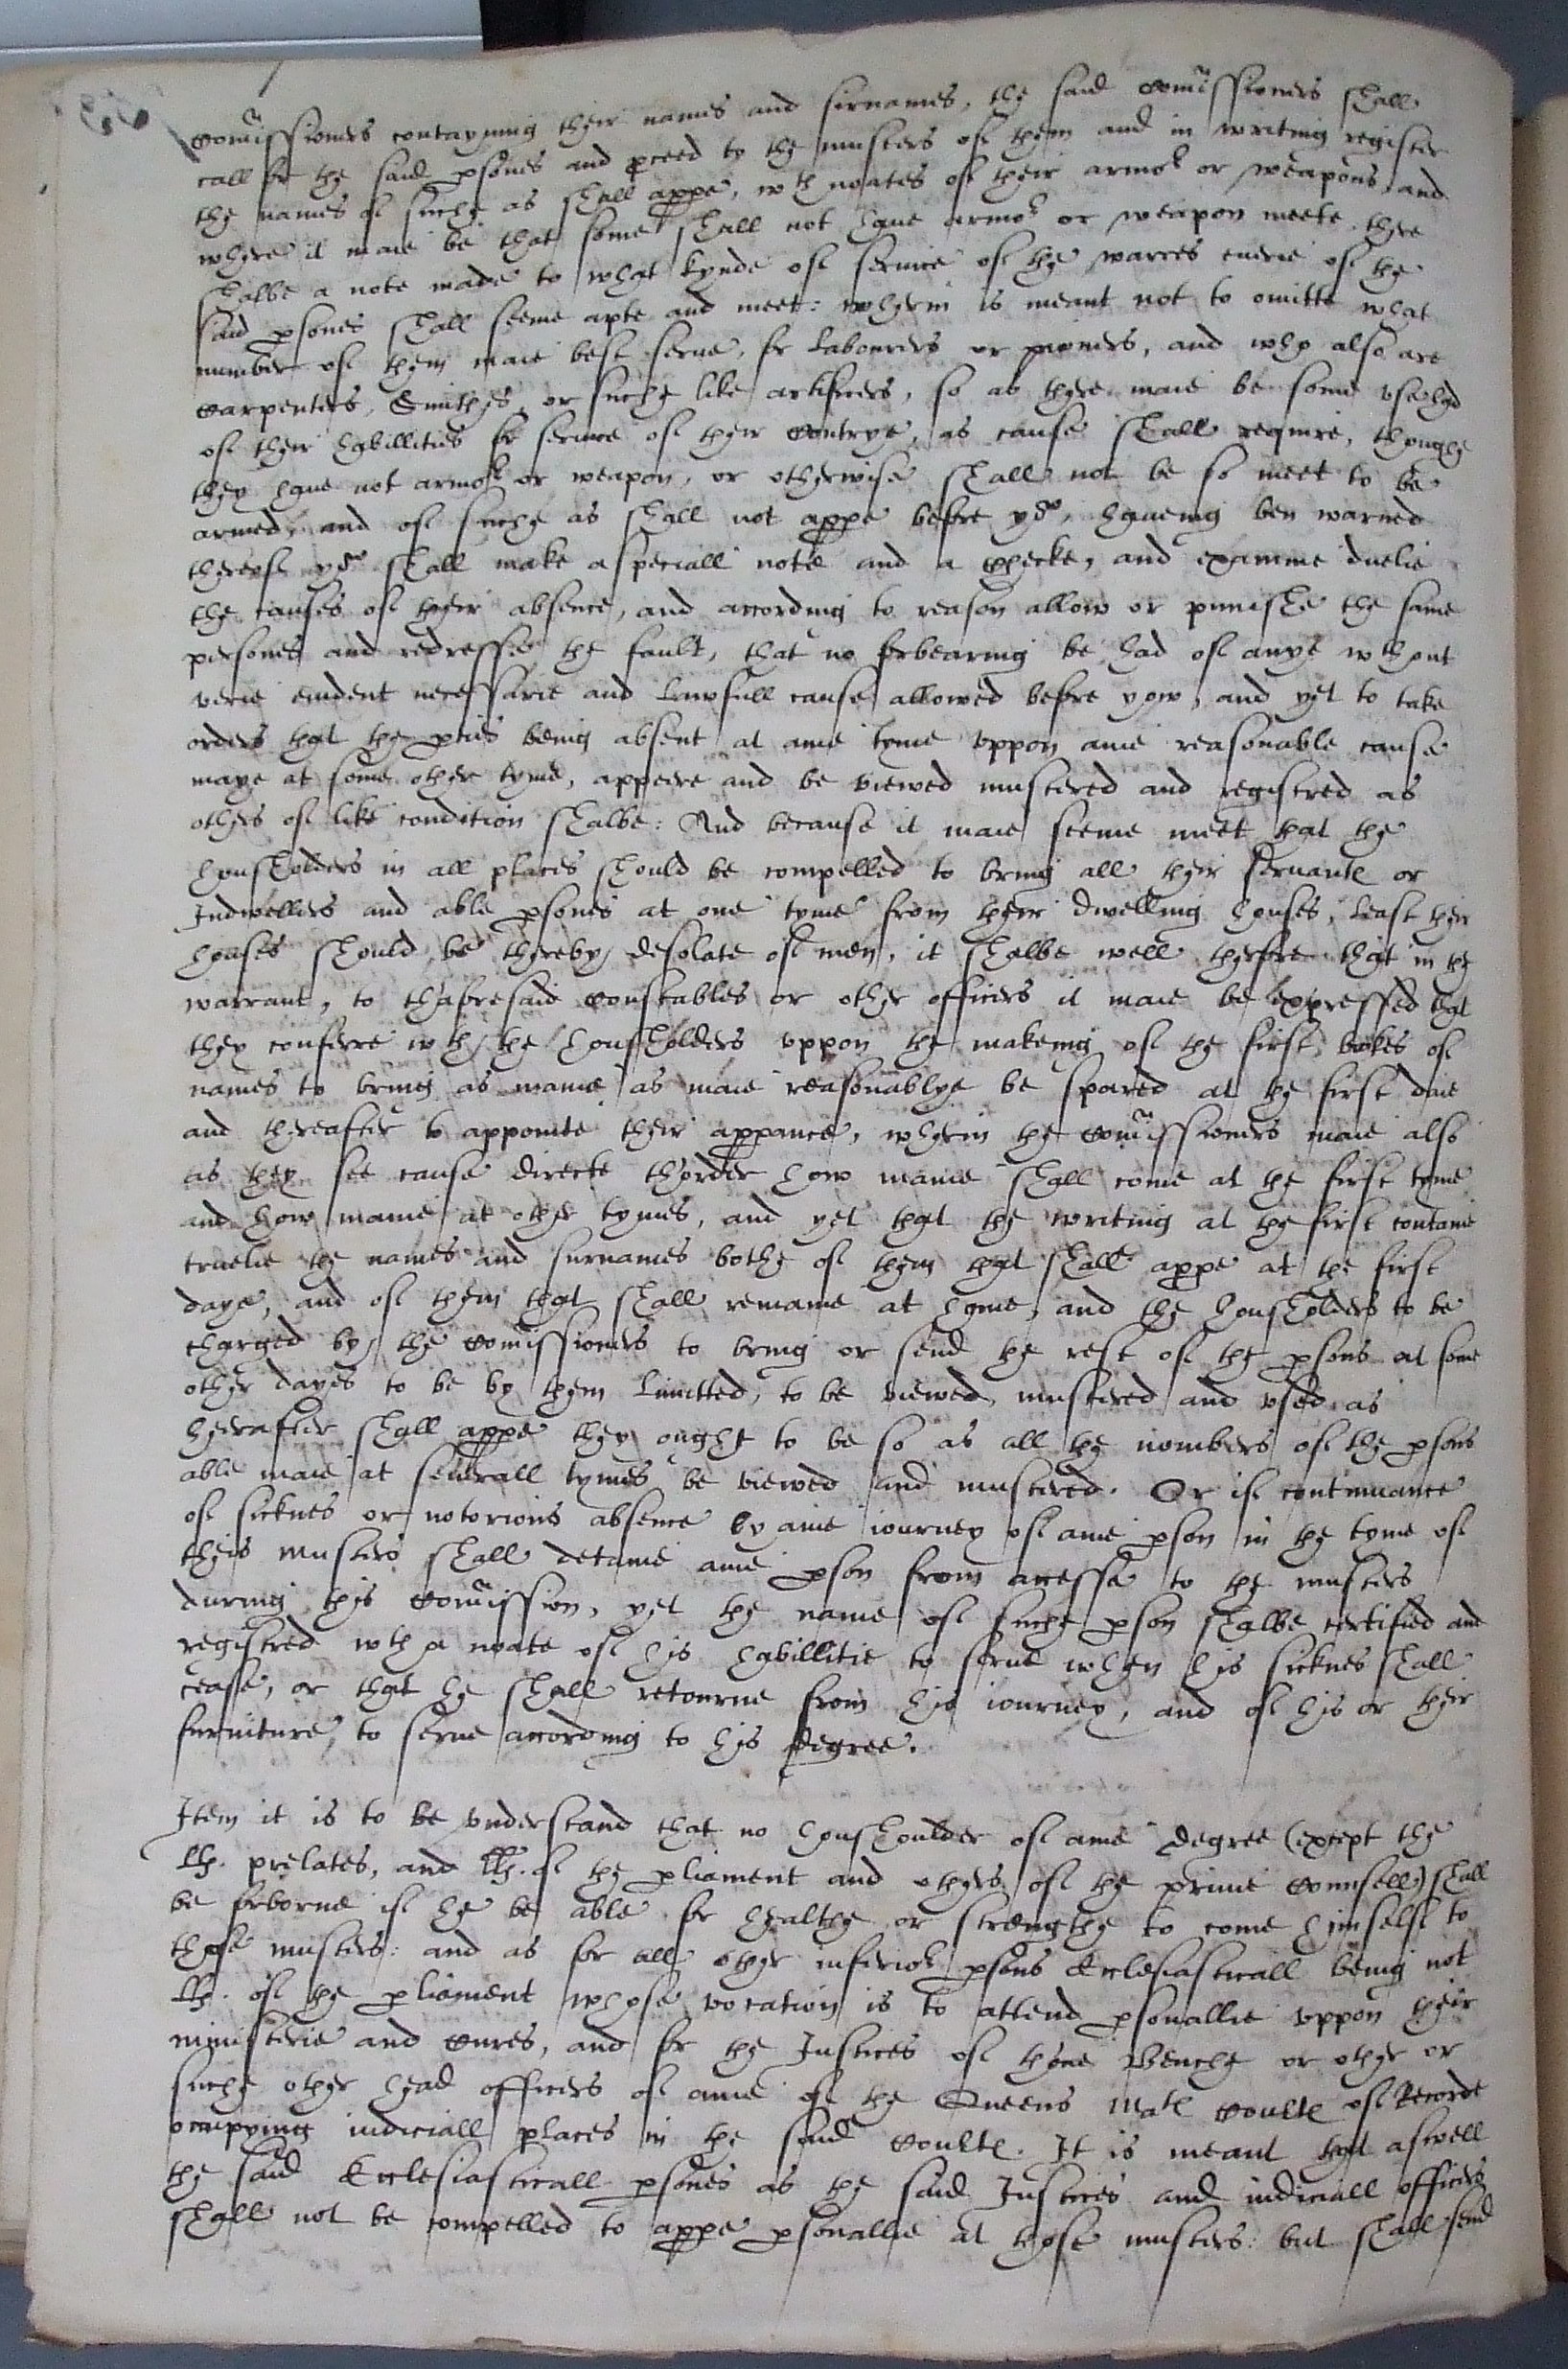 Comissioners contayning their names and sirnames, the said Comissioners shall
call for the said psones and pceed to the musters of them and in writing register
the names of suche as shall appe, wth noates of their armor or weapons, and
where it maie be that some shall not haue armor or weapon meete there
shalbe a note made to what kynde of seruice of the warres euerie of the
said psones shall seeme apte and meet: wherin is meant not to omitte what
number of them maie best serue, for Labourers or pioners, and who also are
Carpenters, Smithes, or suche like artificers, so as there maie be some vse had
of their habillities for seruice of their Contrye, as cause shall require, thoughe
they haue not armor or weapon, or otherwise shall not be so meet to be
armed, and of suche as shall not appe before yow, haueing ben warned
thereof yow shall make a speciall note and a checke, and examine duelie
the causes of their absence, and according to reason allow or punishe the same
persones and redresse the fault, that no forbearing be had of anye wthout
verie euident necessarie and Lawfull cause allowed before yow, and yet to take
orders that the pties being absent at anie tyme vppon anie reasonable cause
maye at some other tyme, appeere and be viewed mustered and registred as
others of like condition shalbe: And because it maie seeme meet that the
housholders in all places should be compelled to bring all their seruants or
Indwellers and able psones at one tyme from their dwelling houses, Least their
houses should be thereby desolate of men, it shalbe well therfore that in the
warrant, to thaforesaid Constables or other officers it maie be expressed that
they conferre wth the housholders vppon the makeing of the first bookes of
names to bring as manie as maie reasonablye be spared at the first daie
and thereafter to appointe their appance, wherin the Comissioners maie also
as they see cause directe thorder how manie shall come at the first tyme
and how manie at other tymes, and yet that the writing at the first containe
truelie the names and surnames bothe of them that shall appe at the first
daye, and of them that shall remaine at home, and the housholders to be
charged by the Comissioners to bring or send the rest of the psons at some
other dayes to be by them Limitted, to be viewed, mustered and vsed as
herafter shall appe they ought to be so as all the nombers of the psons
able maie at seuerall tymes be viewed and mustered. Or if continuance
of sicknes or notorious absence by anie iourney of anie pson in the tyme of
theis musters shall detaine anie pson from accesse to the musters
during this Comission, yet the name of suche pson shalbe certified and
registred wth a noate of his habillitie to serue when his sicknes shall
cease, or that he shall retourne from his iourney, and of his or their
furniture, to serue according to his degree.
Item it is to be vnderstand that no housholder of anie degree (except the
LLs. prelates, and LLs. of the pliament and others of the priuie Counsell) shall
be forborne if he be able for healthe or strengthe to come himself to
those musters: and as for all other inferior psons Ecclesiasticall being not
LLs. of the pliament whose vocation is to attend psonallie vppon their
ministerie and Cures, and for the Justices of theire Benche or other or
suche other head officers of anie of the Queens Mats Courts of Recorde
occupying iudiciall places in the said Courts. It is meant that aswell
the said Ecclesiasticall psones as the said Justices and iudiciall officers
shall not be compelled to appe psonallie at those musters: but shall send